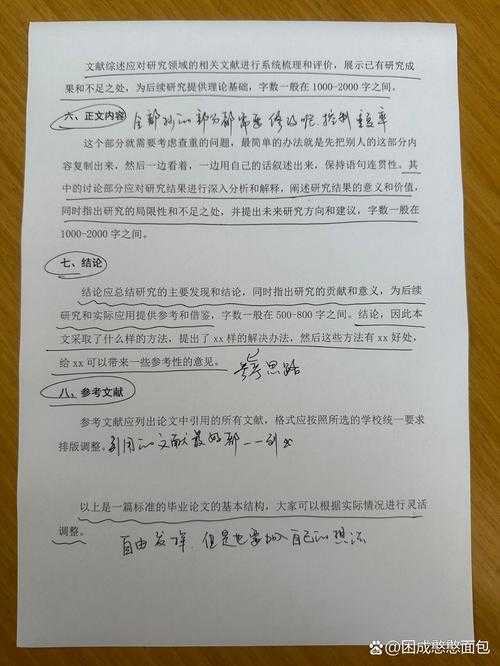 文献综述应对研究领域的相关文献进行系统梳理和评价，展示已有研究成
果和不足之处，为后续研究提供理论基础，字数一般在 1000-2000 字之间。
六、正文内容 全部抄的部分都需要修改呢，控制重复率
这个部分就需要考虑查重的问题，最简单的办法就是先把别人的这部分内
容复制出来，然后一边看着，一边用自己的话叙述出来，保持语句连贯性。其
中的讨论部分应对研究结果进行深入分析和解释，阐述研究结果的意义和价值，
同时指出研究的局限性和不足之处，并提出未来研究方向和建议，字数一般在
1000-2000 字之间。
七、结论
结论应总结研究的主要发现和结论，同时指出研究的贡献和意义，为后续
研究和实际应用提供参考和借鉴，字数一般在 500-800 字之间。结论，因此本
文采取了什么样的方法，提出了 xx 样的解决办法，然后这些方法有 xx 好处，
给 xx 可以带来一些参考性的意见。
参考思路
八、参考文献
参考文献应列出论文中引用的所有文献，格式应按照所选的学校统一要求
排版调整。引用的文献最好都一一列出
以上是一篇标准的毕业论文的基本结构，大家可以根据实际情况进行灵活
调整。
自由发挥，但是也要加入自己的想法
百家号/困成憨憨面包